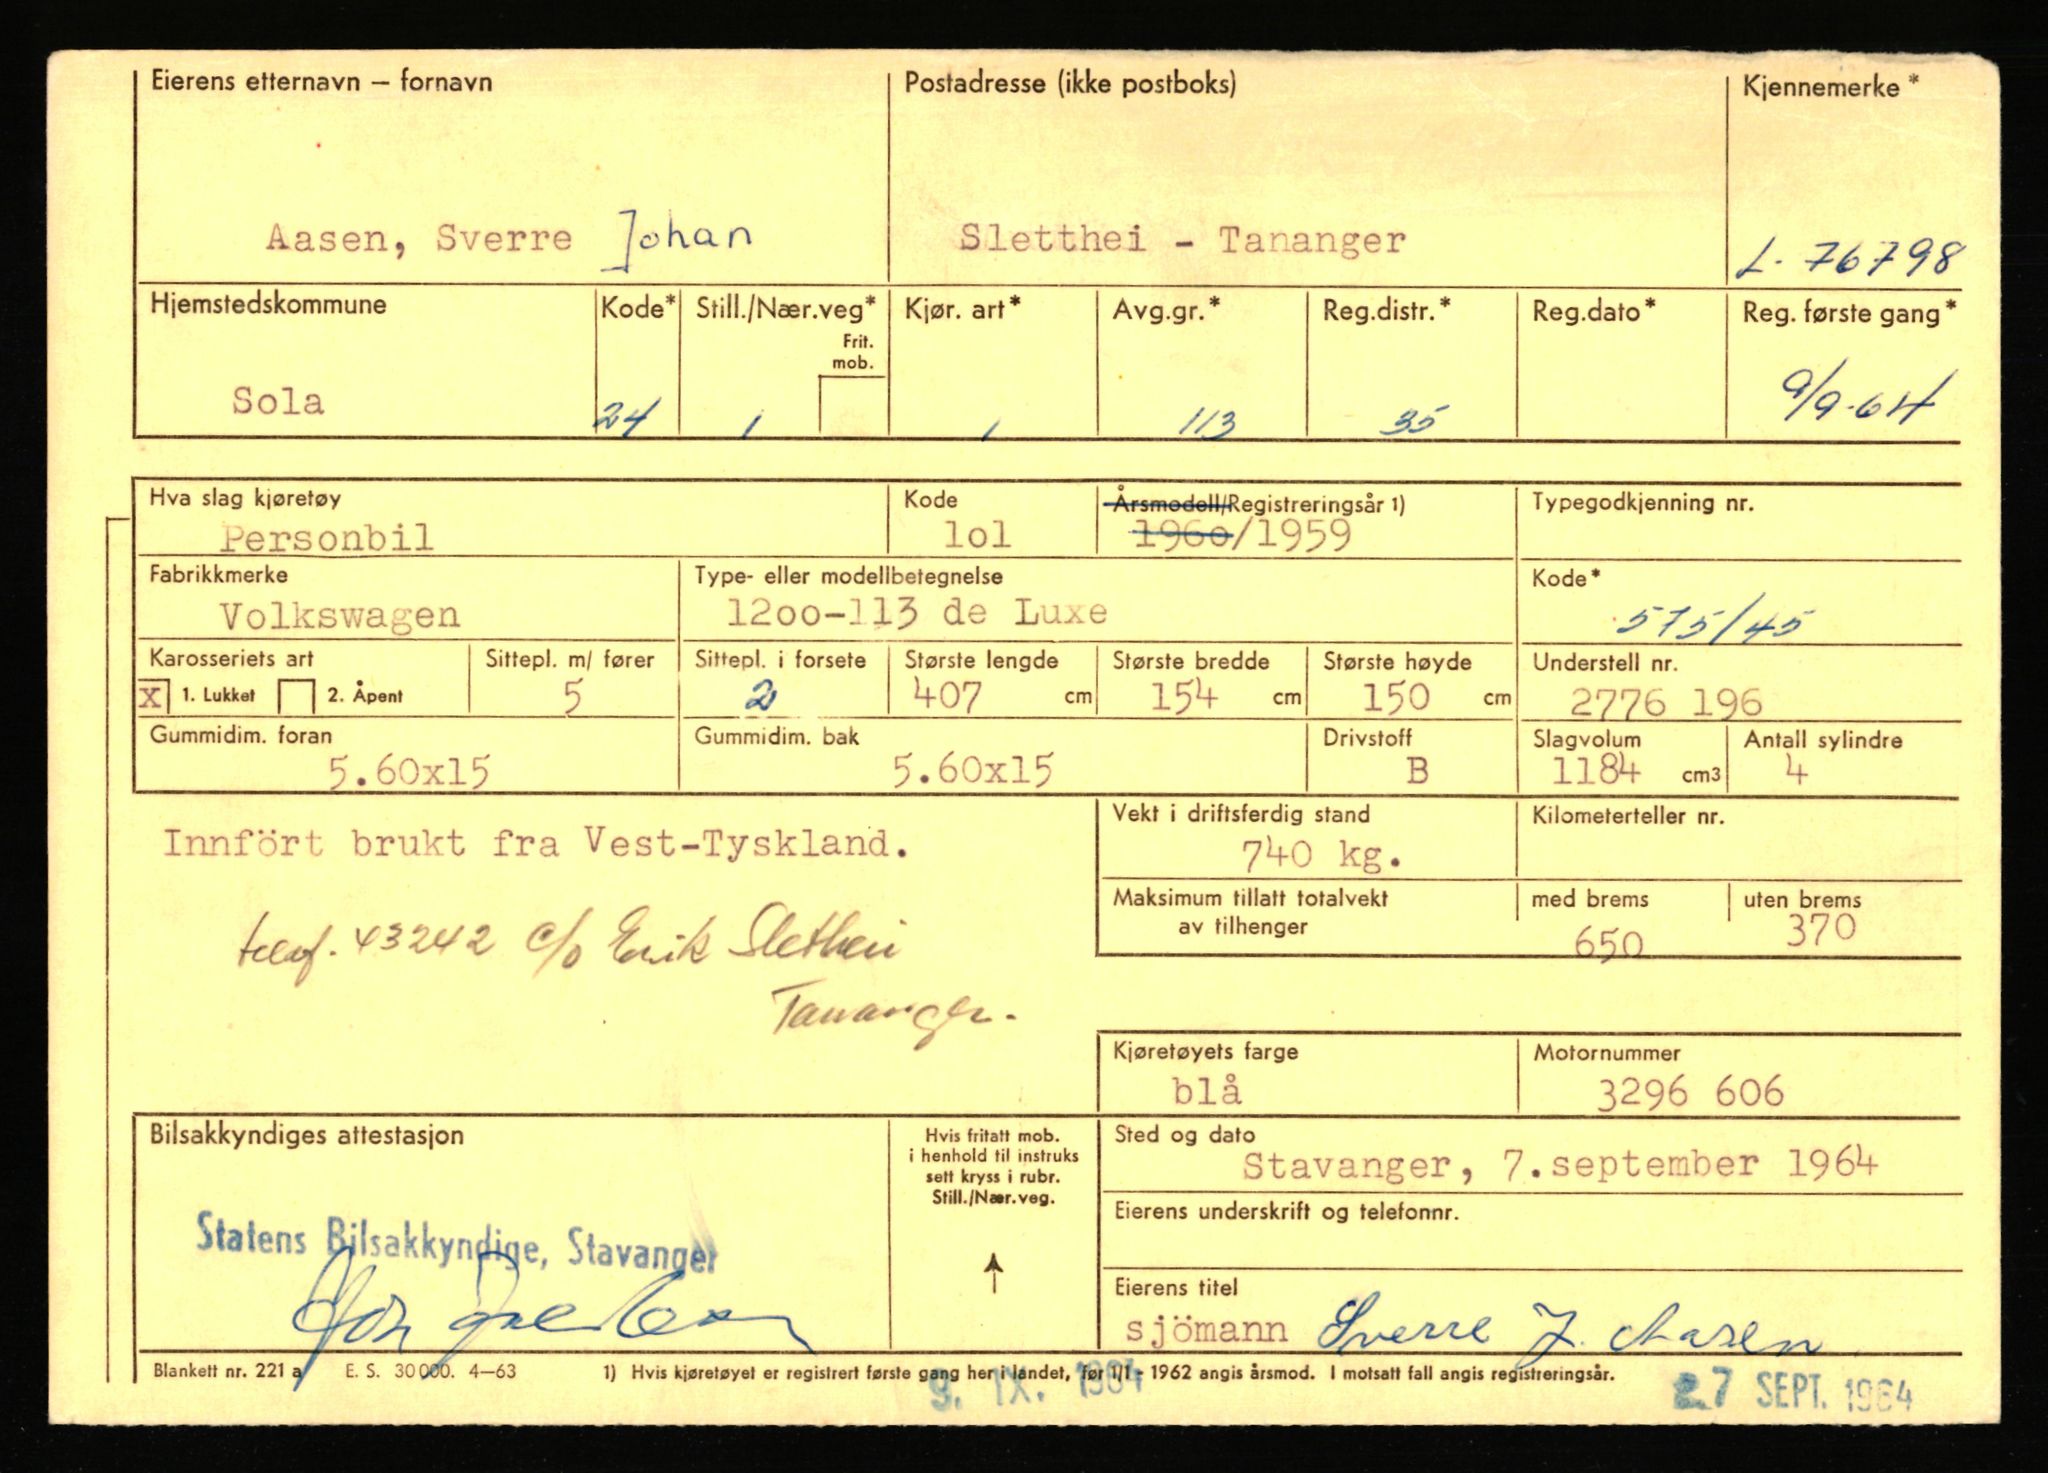 Eierens etternavn – fornavn
Postadresse (ikke postboks)
Kjennemerke*
Aasen, Sverre Johan
Sletthei - Tananger
L- 76798
Hjemstedskommune
Kode*
Still./Nær.veg*
Frit.
mob.
Kjør. art*
Avg.gr.*
Reg.distr.*
Reg.dato*
Reg. første gang*
Sola
24
1
1
113
35
9/9-64
Hva slag kjøretøy
Kode
Årsmodell/Registreringsår 1)
Typegodkjenning nr.
Personbil
lol
196o/1959
Fabrikkmerke
Type- eller modellbetegnelse
Kode*
Volkswagen
12oo-113 de Luxe
575/45
Karosseriets art
Sittepl. m/ fører
Sittepl. i forsete
Største lengde
Største bredde
Største høyde
Understell nr.
X 1. Lukket 2. Åpent
5
2
407 cm
154 cm
150 cm
2776 196
Gummidim. foran
Gummidim. bak
Drivstoff
Slagvolum
Antall sylindre
5.60x15
5.60x15
B
1184 cm3
4
Innfört brukt fra Vest-Tyskland.
Vekt i driftsferdig stand
Kilometerteller nr.
740 kg.
Maksimum tillatt totalvekt
av tilhenger
med brems
uten brems
650
370
telef. 43242 c/o Erik Slethei
Tananger.
Kjøretøyets farge
Motornummer
blå
3296 606
Bilsakkyndiges attestasjon
Hvis fritatt mob.
i henhold til instruks
sett kryss i rubr.
Still./Nær.veg.
Sted og dato
Stavanger, 7.september 1964
Eierens underskrift og telefonnr.
Statens Bilsakkyndige, Stavanger
Eierens titel
sjömann Sverre J. Aasen
Blankett nr. 221 a E. S. 30000. 4–63
1) Hvis kjøretøyet er registrert første gang her i landet, før 1/1 - 1962 angis årsmod. I motsatt fall angis registreringsår.
9. IX. 1964
27 SEPT. 1964